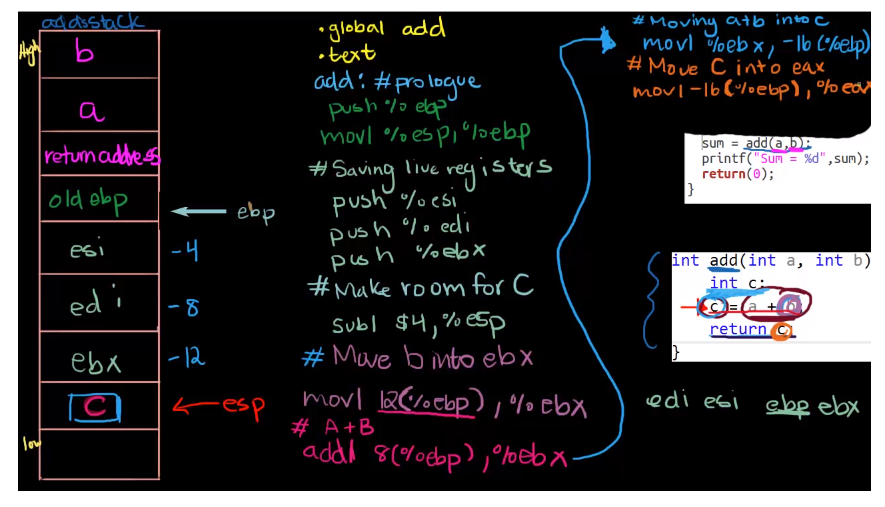 addsstack
High
b
a
return address
old ebp
ebp
esi
-4
edi
-8
ebx
-12
C
esp
low
.global add
.text
add: #prologue
push %ebp
movl %esp, %ebp
# Saving live registers
push %esi
push % edi
push %ebx
# Make room for C
subl $4, %esp
# Move b into ebx
movl 12(%ebp), %ebx
# A+B
addl 8(%ebp), %ebx
# Moving a+b into c
movl %ebx, -16(%ebp)
# Move C into eax
movl -16(%ebp), %eax
sum = add(a,b);
printf("Sum = %d",sum);
return(0);
}
int add(int a, int b)
int c;
c = a + b;
return c;
}
edi esi ebp ebx